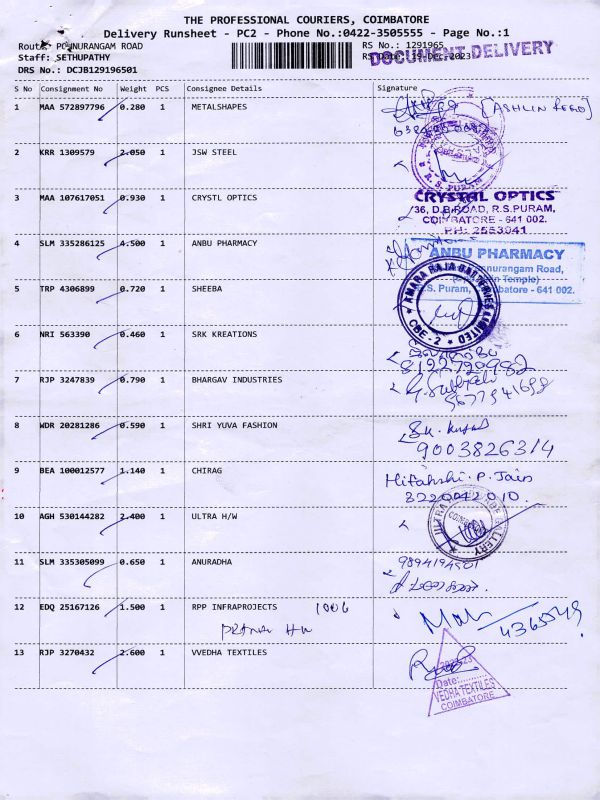 THE PROFESSIONAL COURIERS, COIMBATORE
Delivery Runsheet - PC2 - Phone No.:0422-3505555 - Page No.:1
Route: PONNURANGAM ROAD
RS No.: 1291965
Staff: SETHUPATHY
RS Date: 19-DEC-2023
DOCUMENT DELIVERY
DRS No.: DCJB129196501
S No Consignment No Weight PCS Consignee Details Signature
1 MAA 572897796 0.280 1 METALSHAPES
[ASHLIN REGO]
2 KRR 1309579 2.050 1 JSW STEEL
R.S. PURAM
3 MAA 107617051 0.930 1 CRYSTL OPTICS
CRYSTAL OPTICS
36, D.B.ROAD, R.S.PURAM,
COIMBATORE - 641 002.
PH: 2553041
4 SLM 335286125 4.500 1 ANBU PHARMACY
ANBU PHARMACY
nnurangam Road,
n Temple)
R.S. Puram, Coimbatore - 641 002.
5 TRP 4306899 0.720 1 SHEEBA
AMARA RAJA BATTERIES LIMITED
CBE - 2
6 NRI 563390 0.460 1 SRK KREATIONS
8122720982
7 RJP 3247839 0.790 1 BHARGAV INDUSTRIES
8 WDR 20281286 0.590 1 SHRI YUVA FASHION
9003826314
9 BEA 100012577 1.140 1 CHIRAG
P. Jain
8220042010.
10 AGH 530144282 2.400 1 ULTRA H/W
ULTRA
GALLERY
11 SLM 335305099 0.650 1 ANURADHA
12 EDQ 25167126 1.500 1 RPP INFRAPROJECTS 1006
13 RJP 3270432 2.600 1 VVEDHA TEXTILES
Date:
VEDHA TEXTILES
COIMBATORE